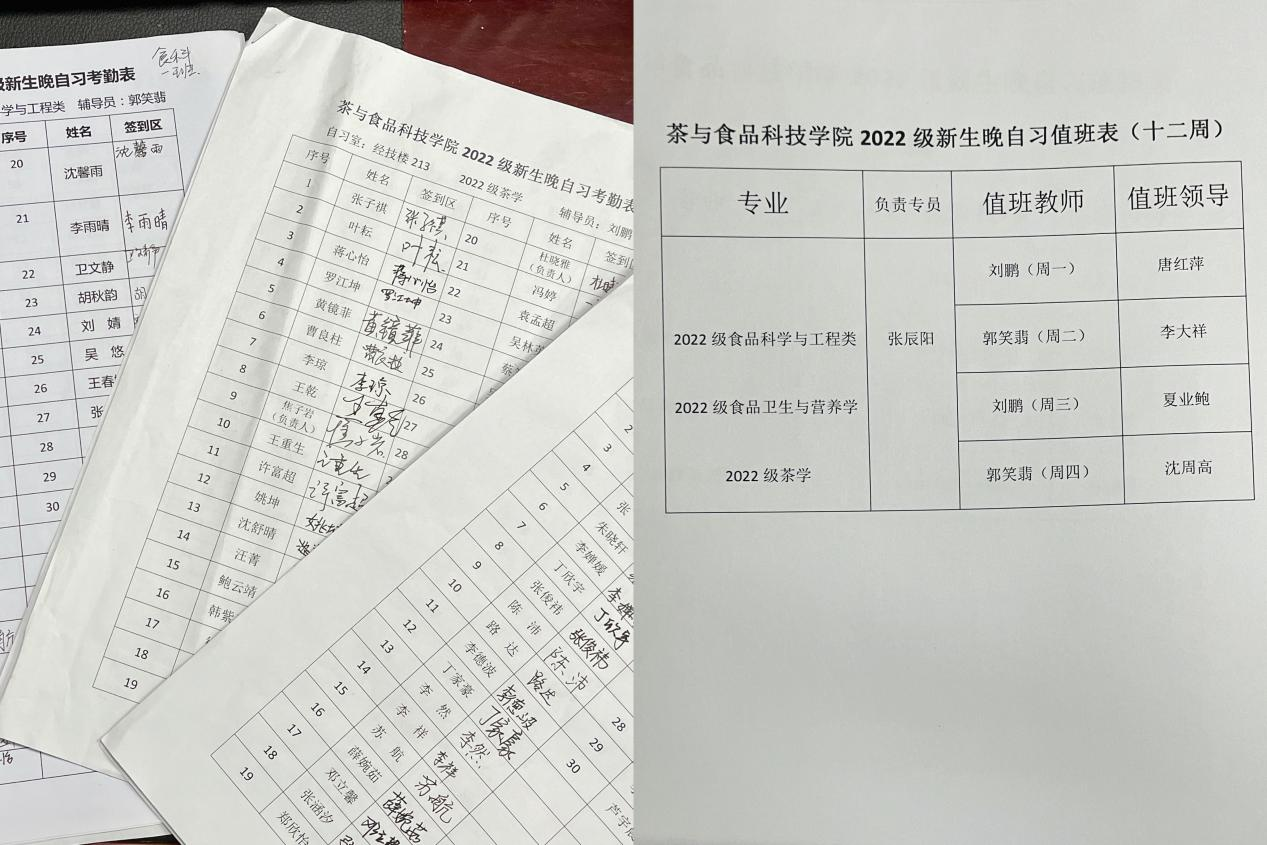 食科
一班
级新生晚自习考勤表
学与工程类 辅导员：郭笑翡
序号 姓名 签到区
20 沈馨雨 沈馨雨
21 李雨晴 李雨晴
22 卫文静
23 胡秋韵 胡
24 刘 婧
25 吴 悠
26 王春
27 张
28
29
30
茶与食品科技学院 2022 级新生晚自习考勤表
自习室：经技楼 213 2022 级茶学 辅导员：刘鹏
序号 姓名 签到区 序号 姓名 签到区
1 张子祺 张子祺 20 杜晓雅（负责人）
2 叶耘 叶耘 21 冯婷
3 蒋心怡 蒋心怡 22 袁孟超
4 罗江坤 罗江坤 23 吴林
5 黄镜菲 黄镜菲 24 蔡
6 曹良柱 曹良柱 25
7 李琼 李琼 26
8 王乾 王乾 27
9 焦子岩（负责人） 焦子岩 28
10 王重生 王重生
11 许富超 许富超
12 姚坤 姚坤
13 沈舒晴
14 汪菁
15 鲍云靖
16 韩紫
17
18
19
2
3
4 张
5 朱晓轩
6 李婵媛 李婵
7 丁欣宇 丁欣宇
8 张俊祎 张俊祎
9 陈 沛 陈沛
10 路 达 路达
11 李德波 李德波 28
12 丁家豪 丁家豪 29
13 李 然 李然 30
14 李 祥 李祥
15 苏 航 苏航
16 薛婉茹 薛婉茹
17 邓立馨
18 张涵汐
19 郑欣怡
芦宇
茶与食品科技学院 2022 级新生晚自习值班表（十二周）
专业 负责专员 值班教师 值班领导
刘鹏（周一） 唐红萍
2022 级食品科学与工程类 张辰阳 郭笑翡（周二） 李大祥
2022 级食品卫生与营养学 刘鹏（周三） 夏业鲍
2022 级茶学 郭笑翡（周四） 沈周高